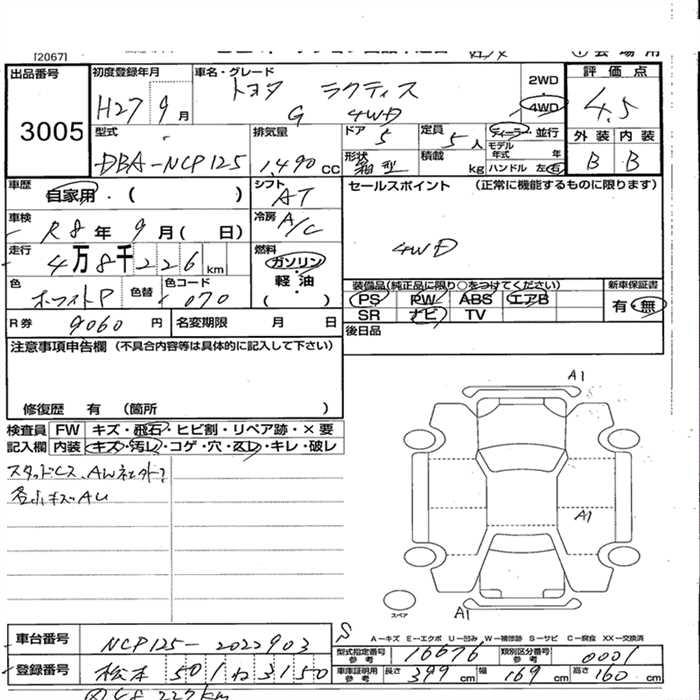 [2067]
出品番号
3005
初度登録年月
H27 9 月
車名・グレード
トヨタ ラクティス
G 4WD
2WD
4WD
評価点
4.5
外装 内装
B B
型式
DBA-NCP125
排気量
1,490 cc
ドア 5
定員 5人
ディーラー 並行
モデル年式 年
形状 箱型
積載 kg
ハンドル 左 右
車歴
自家用・( )
シフト AT
セールスポイント (正常に機能するものに限ります)
4WD
車検
R8年 9月( 日)
冷房 A/C
走行
4万8千226 km
燃料
ガソリン・
軽・油
( )
色
ホワイトP
色替
色コード
070
装備品(純正品に限り○をつけてください)
PS PW ABS エアB
SR ナビ TV
新車保証書
有・無
R券 9060 円
名変期限 月 日
後日品
注意事項申告欄 (不具合内容等は具体的に記入して下さい)
修復歴 有 (箇所 )
検査員 FW キズ・飛石・ヒビ割・リペア跡・×要
記入欄 内装 キズ・汚レ・コゲ・穴・スレ・キレ・破レ
各小キズAU
A1
A1
A1
スペア
A-キズ E-エクボ U-凹み W-補修跡 S-サビ C-腐食 XX-交換済
車台番号 NCP125-2022903
型式指定番号 参考 16676
類別区分番号 参考 0001
登録番号 松本 501 ね 3150
車庫証明用 参考 長さ 399 cm 幅 169 cm 高さ 160 cm